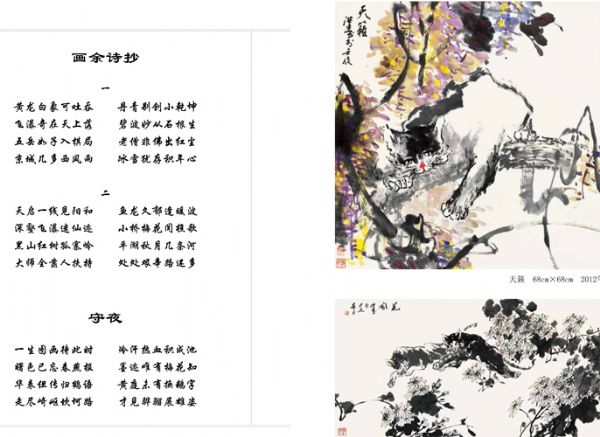 画余诗抄
一
黄龙白象可吐吞 丹青别创小乾坤
飞瀑奇在天上落 碧波妙从石根生
五岳如子入棋局 老僧非佛出红尘
京城几多西风雨 冰雪犹存积年心
二
天启一线见阳和 鱼龙久郁逢暖波
深壑飞瀑迷仙迹 小桥梅花闻棹歌
黑山红树孤寒岭 平湖秋月几条河
大师全凭人扶持 处处艰辛路途多
守夜
一生图画待此时 冷汗热血积成池
曙色已忘春蚕报 墨迹唯有梅花知
华卷但传归鹤语 黄庭未有换鹅字
走尽崎岖坎坷路 才见骅骝展雄姿
天籁
天籁 68cm×68cm 2012年